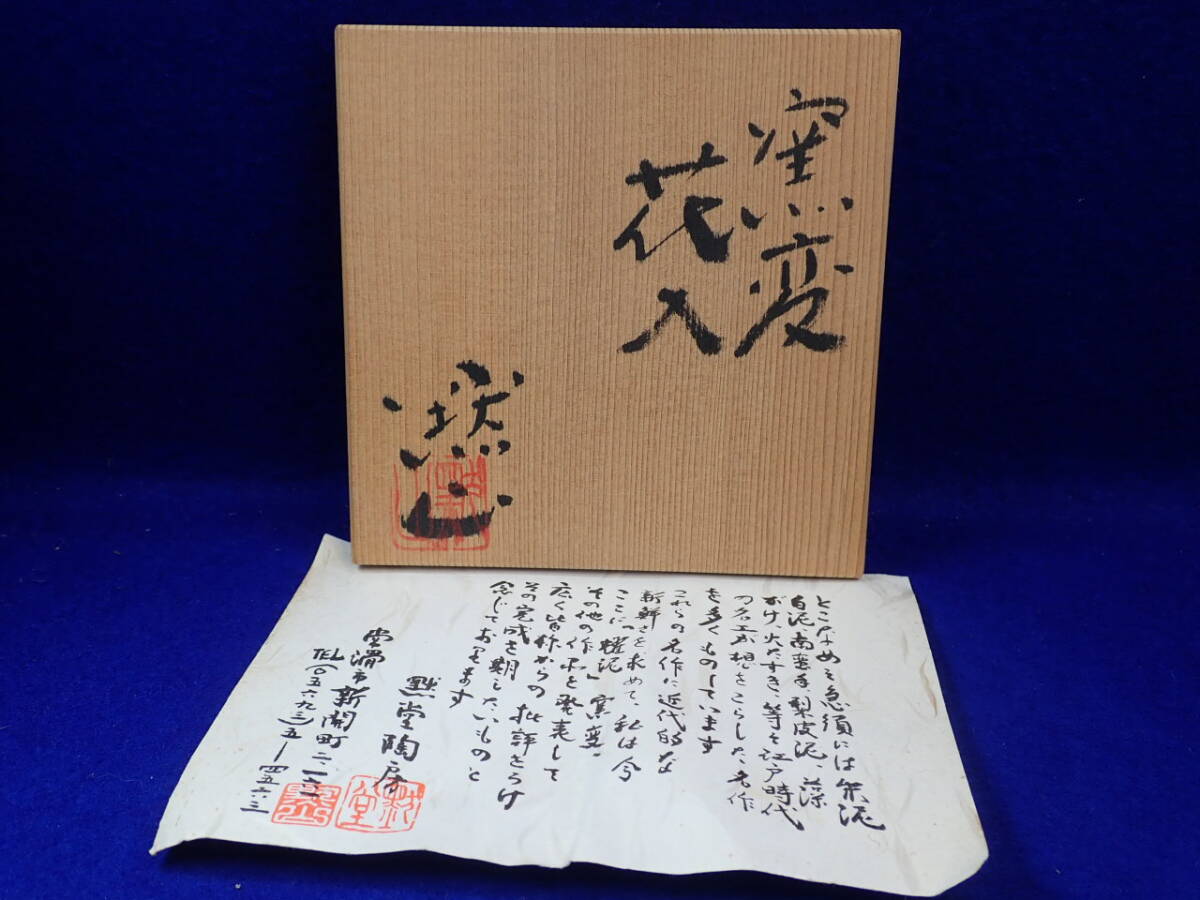 窯変
花入
とこなめの急須には朱泥
白泥、南蛮手、梨皮泥、藻
がけ、火だすき、等々江戸時代
の名工が想をこらした名作
を多くものしています
これらの名作に近代的な
新鮮さを求めて、私は今
ここに「耀泥」窯変、
その他の作品を発表して
広く皆様からの批評をうけ
その完成を期したいものと
念じております
黙堂陶房
常滑市新開町二、一
TEL(〇五六九三)五ー四五六三